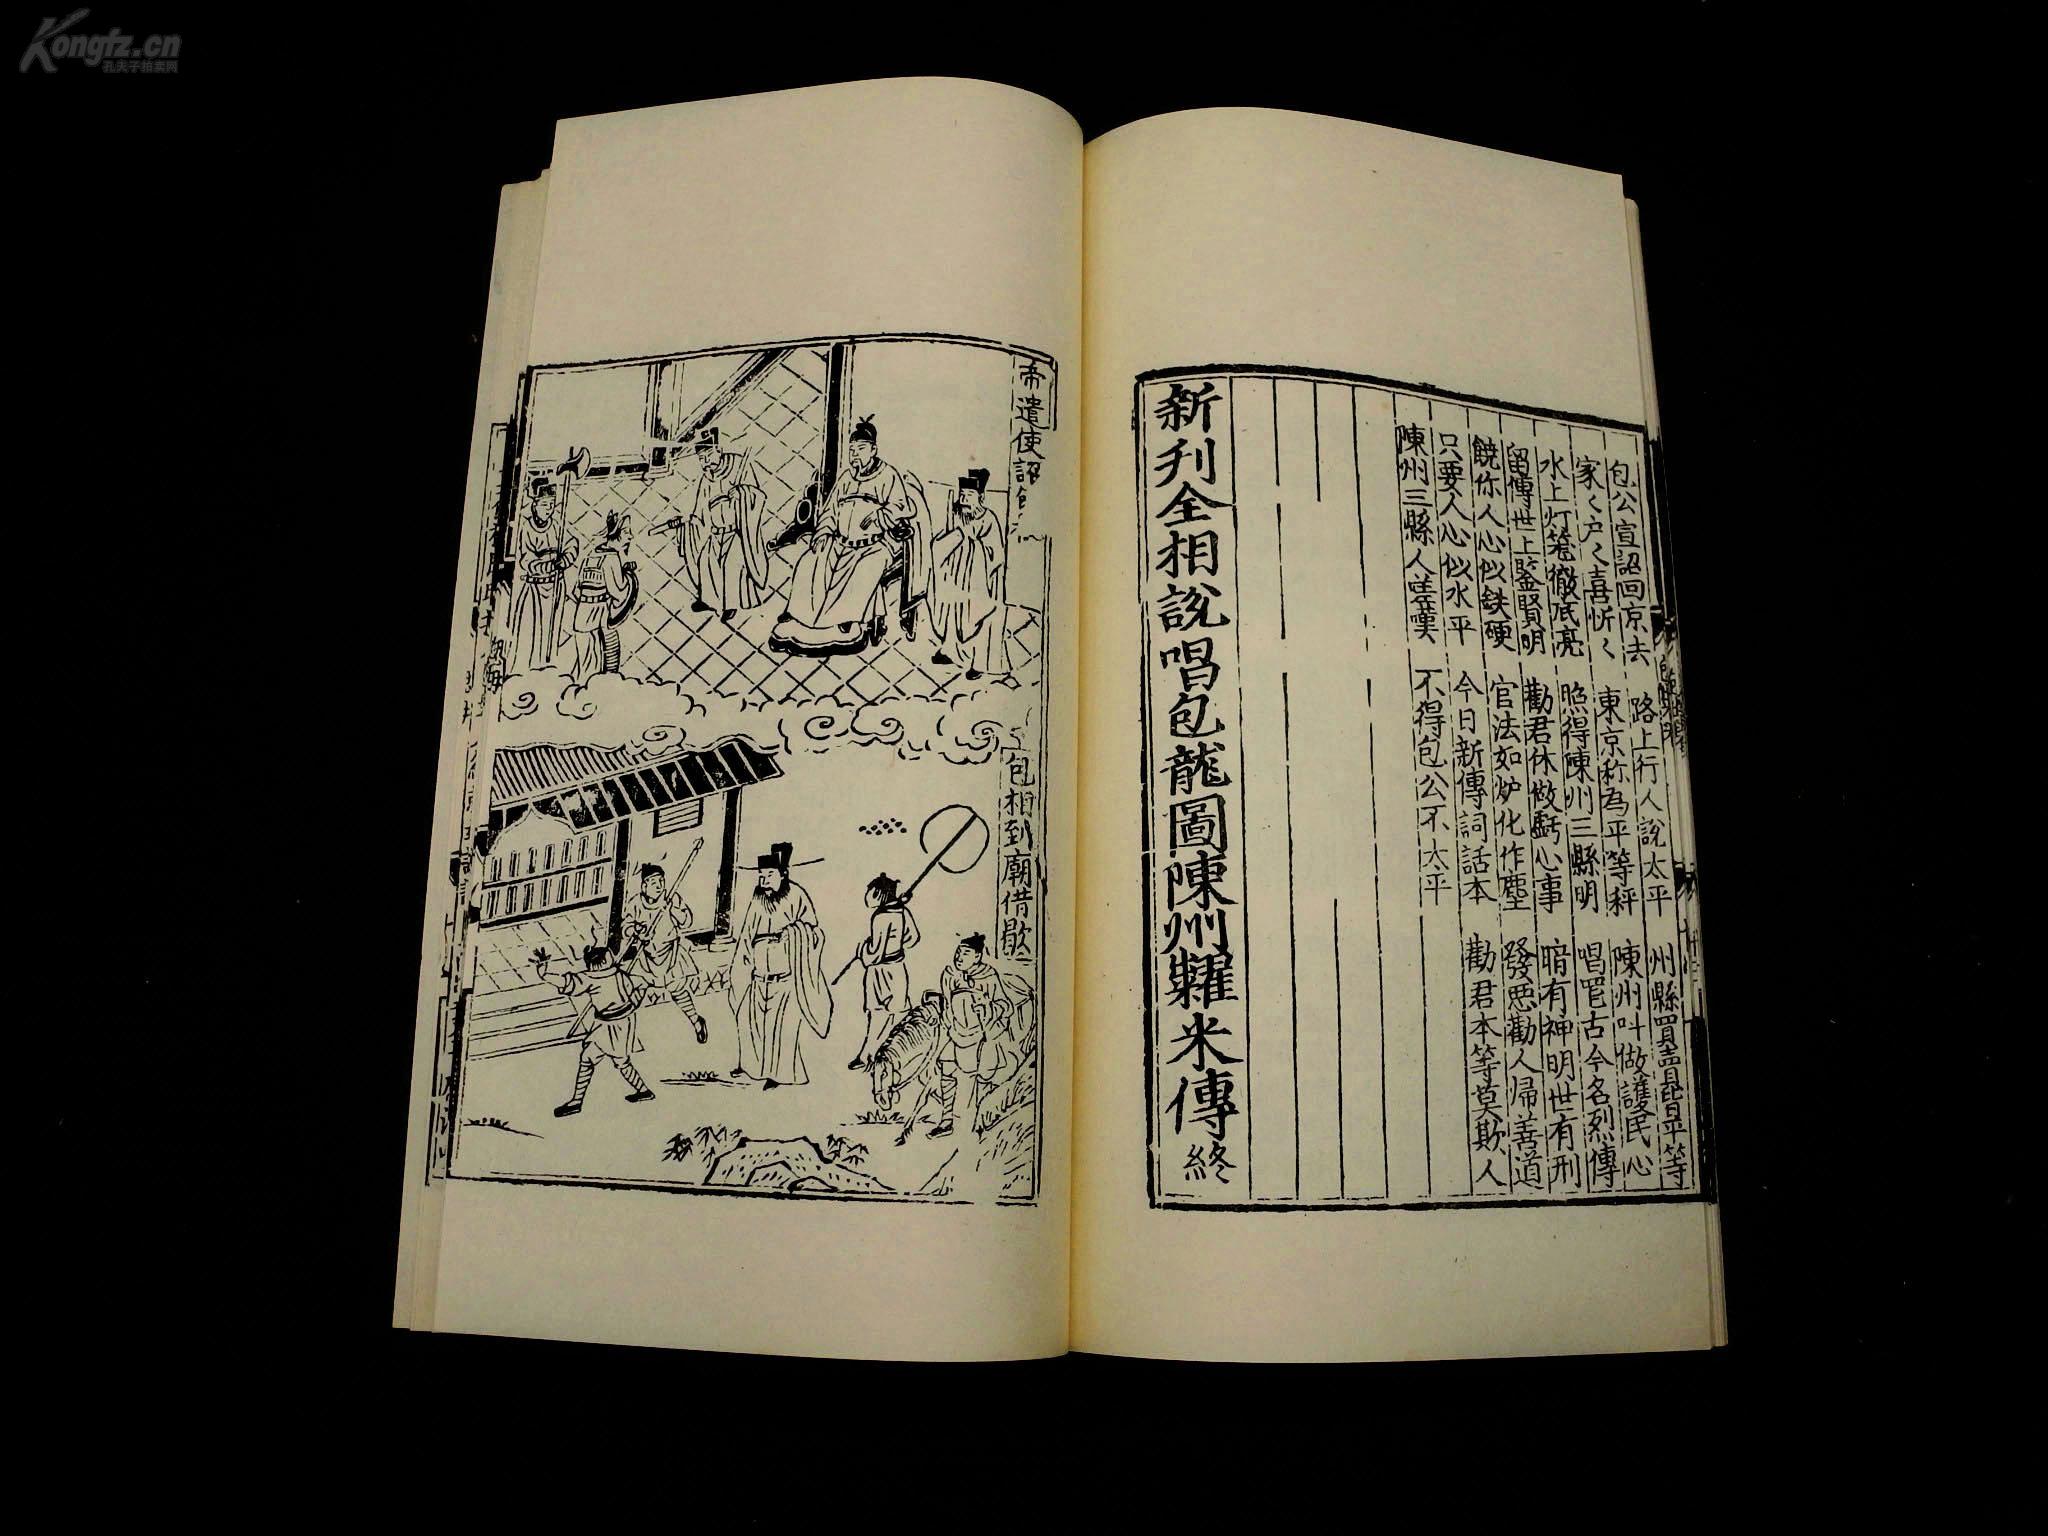 Kongfz.cn
孔夫子拍卖网
包公宣詔回京去 路上行人說太平 州縣買賣昆是平等
家〻户〻喜忻〻 東京称為平等秤 陳州叫做護民心
水上灯篭徹底亮 照得陳州三縣明 唱罷古今名烈傳
留傳世上鑒賢明 勸君休做虧心事 暗有神明世有刑
饒你人心似鉄硬 官法如炉化作塵 發惡勸人帰善道
只要人心似水平 今日新傳詞話本 勸君本等莫欺人
陳州三縣人嗟嘆 不得包公不太平
新刋全相說唱包龍圖陳州糶米傳 終
帝遣使詔
包相到廟借歇